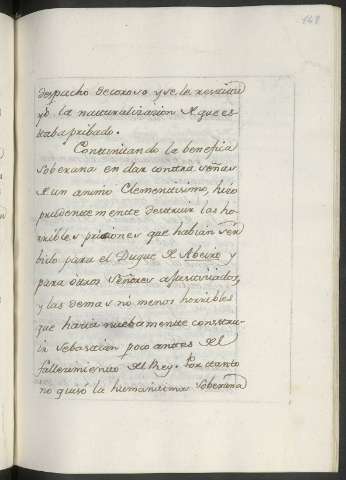 148
despacho decoroso y se le restitu
yó la naturalizacion de que es
taba pribado.
Continuando la benefica
Soberana en dar contra señas
de un animo Clementisimo, hizo
prudentemente destruir las ho
rribles prisiones que habian ser
bido para el Duque de Abeiro y
para otros Señores ajusticiados,
y las demas no menos horribles
que hacia nuebamente constru
ir Sebastian poco antes del
fallecimiento del Rey. Por tanto
no quisó la humanisima Soberana